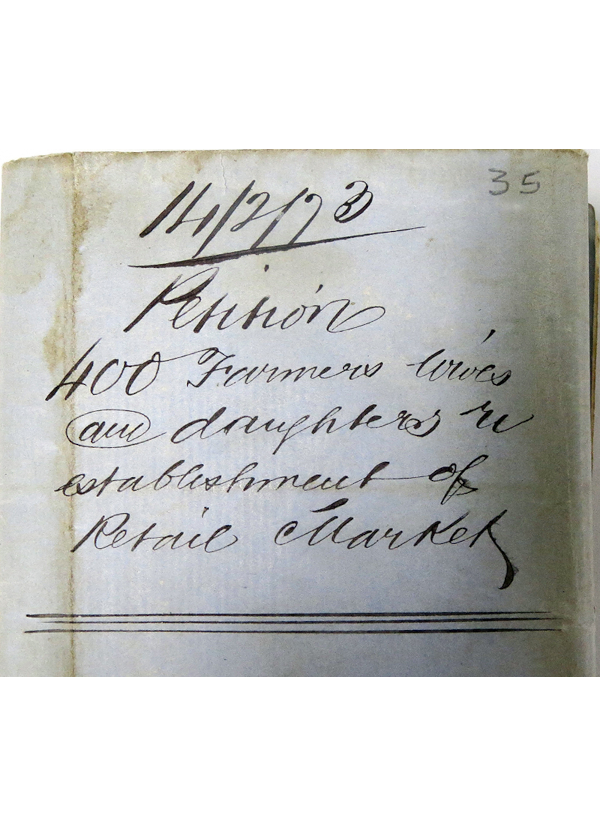 35
14/2/73
Petition
400 Farmers wives
and daughters re
establishment of
Retail Market